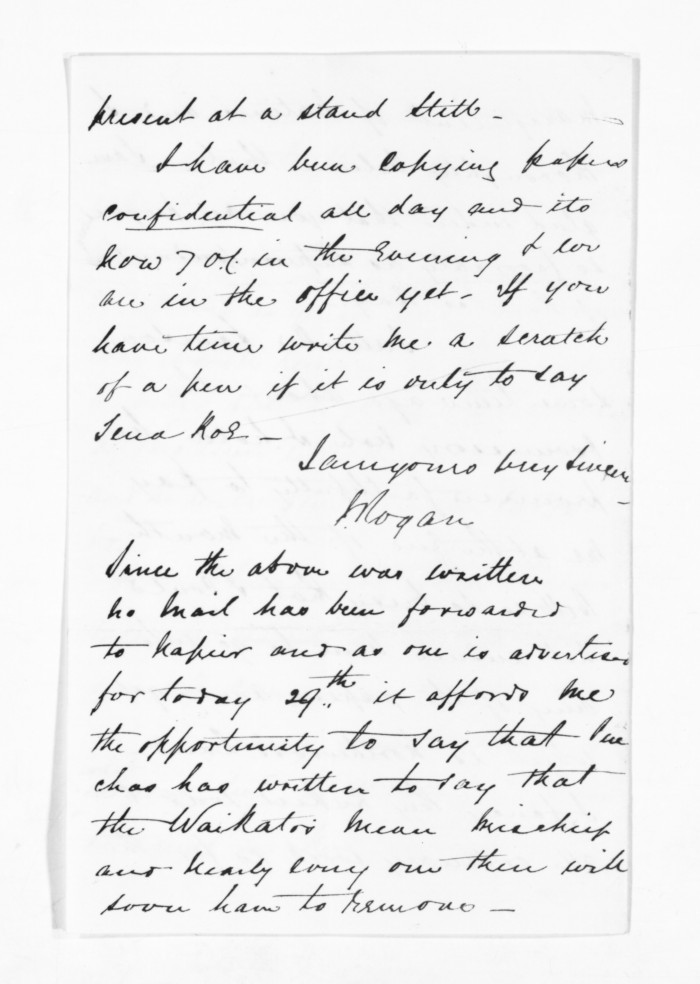 present at a stand still -
I have been copying papers
confidential all day and its
now 7 o.c. in the Evening & we
are in the office yet - If you
have time write me a scratch
of a pen if it is only to say
Tena Koe -
I am yours very Sincere
J Rogan
Since the above was written
no Mail has been forwarded
to Napier and as one is advertised
for today 29th. it affords me
the opportunity to say that
chas has written to say that
the Waikatos mean mischief
and nearly every one there will
soon have to remove -